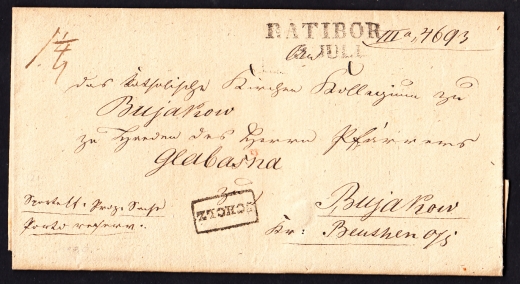 RATIBOR
JULI
IIIa, 4693
1 1/4
das katholische Kirchen Kollegium zu
Bujakow
zu Händen des Herrn Pfarrers
Glabasna
zu
Bujakow
Kr: Beuthen O/S
SCHOLZ